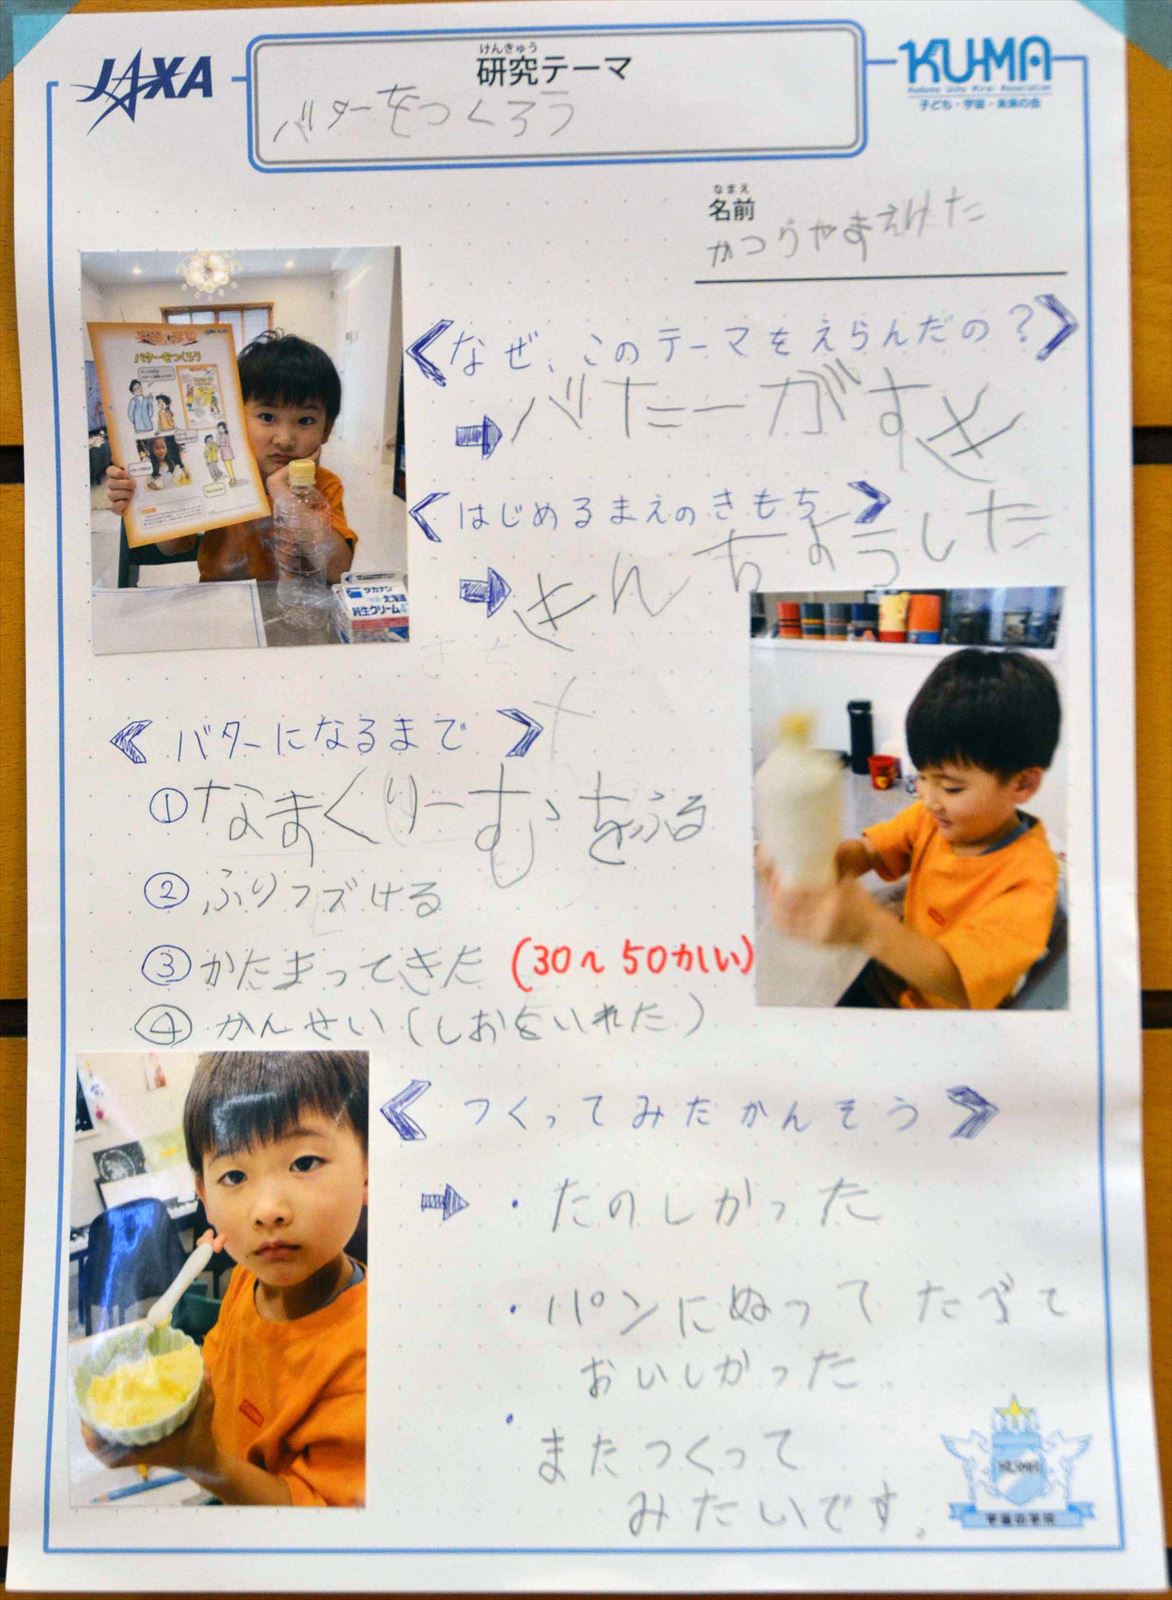 JAXA
けんきゅう
研究テーマ
KU-MA
子ども・宇宙・未来の会
バターをつくろう
なまえ
名前
かつらやまえけた
バターをつくろう
タカナシ
北海道
純生クリーム
《なぜ、このテーマをえらんだの？》
バたーがすき
《はじめるまえのきもち》
きんちょうした
《バターになるまで》
①なまくりーむをふる
②ふりつズける
③かたまってきた(30〜50かい)
④かんせい(しおをいれた)
《つくってみたかんそう》
・たのしかった
・パンにぬってたべて
おいしかった
・またつくって
みたいです。
KU-MA
宇宙の学校